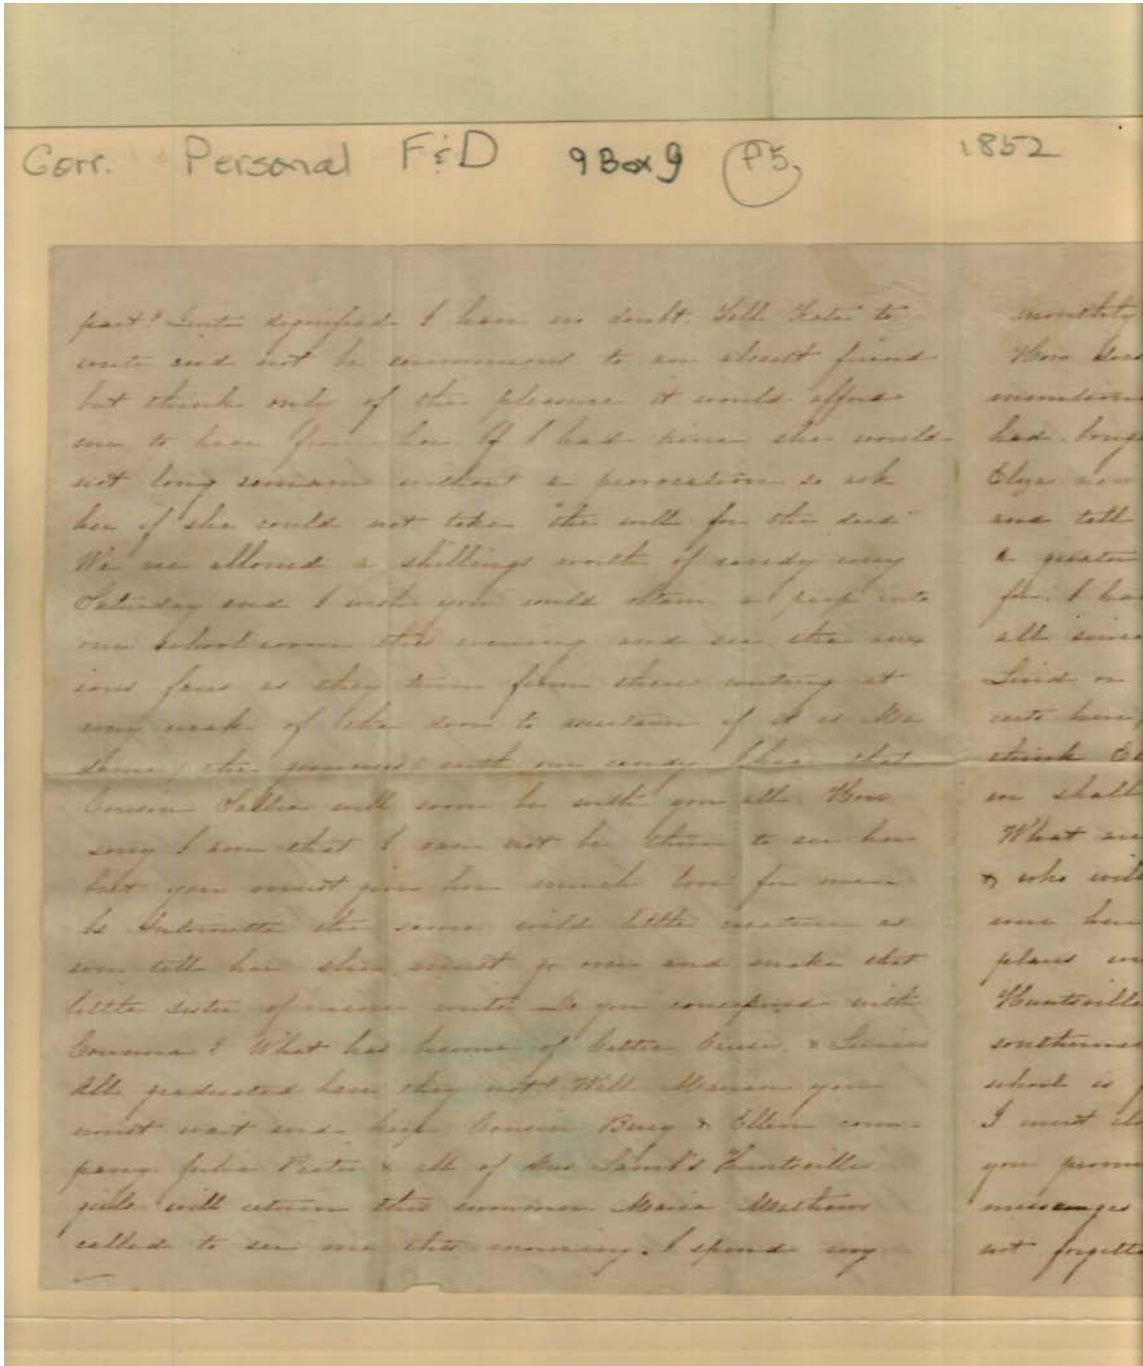 Corr. Personal F&D 9 Box 9 P5, 1852
part? Quite dignified I have no doubt. Tell Kate to
write and not be ceremonious to an absent friend
but think only of the pleasure it would afford
me to hear from her. If I had time she would
not long remain without a provocation so ask
her if she could not take "the will for the deed"
We are allowed a shillings worth of candy every
Saturday and I wish you could obtain a peep into
our school room this evening and see the anx
ious faces as they turn from their writing at
every creak of the door to ascertain if it is Ma
dame, the with our candy. I hear that
Cousin Sallie will soon be with you all. How
sorry I am that I can not be there to see her
but you must give her much love for me.
Is Antoinette the same wild little creature as
ever tell her she must go over and make that
little sister of mine write. Do you correspond with
? What has become of &
All graduated have they not? Well Marian you
must wait and keep Cousin & Ellen com-
pany. & all of Miss Lamb's Huntsville
girls will return this summer. Maria Mathews
called to see me this morning. I spend my
monthly
How does
had
Eliza now
and tell
a greater
for. I ha
all since
Lind or
think
we shall
What are
& who will
me
plans
Huntsville
southerner
school is
I must clo
you
messages
not forgett